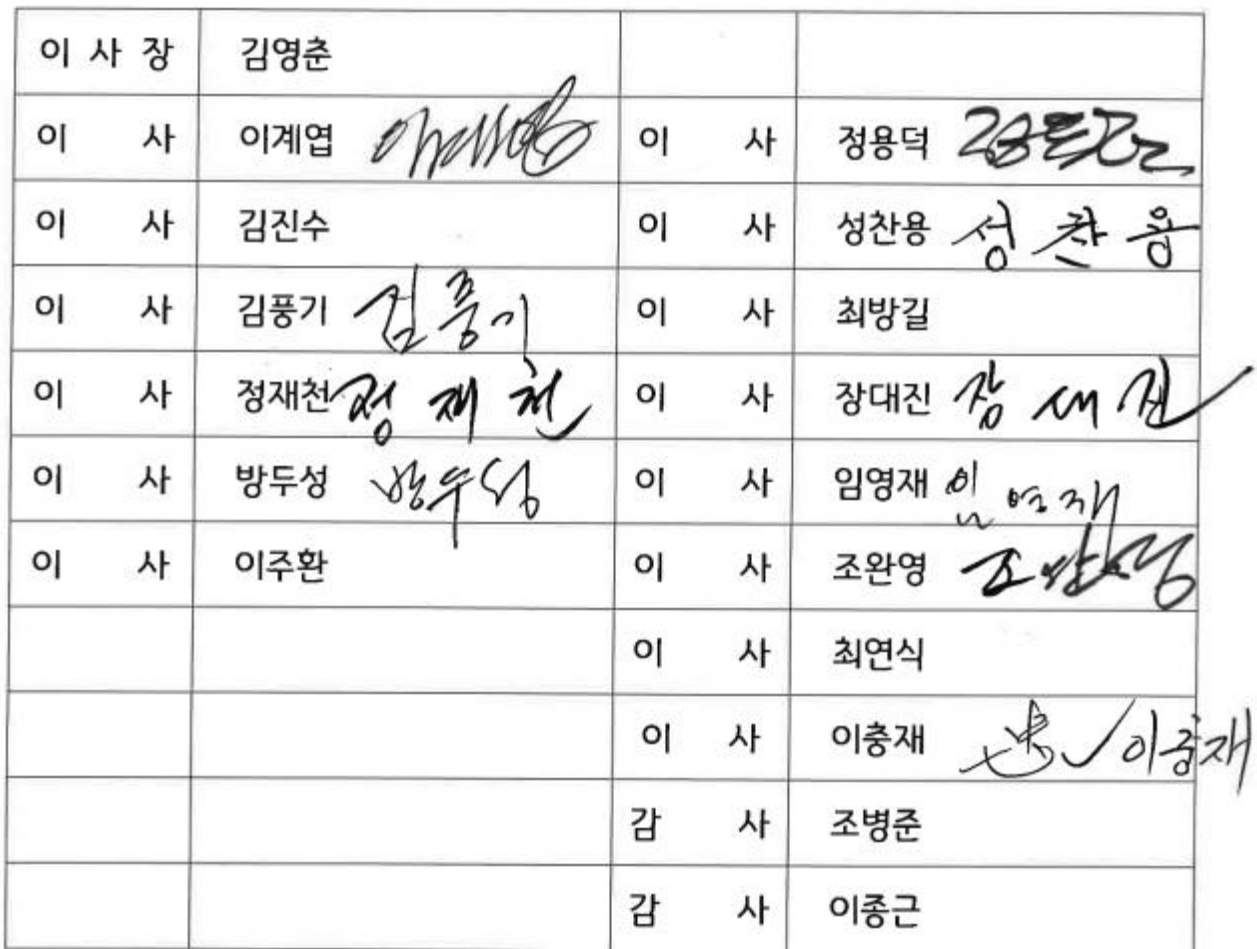 이 사 장 김영춘
이 사 이계엽 이 사 정용덕
이 사 김진수 이 사 성찬용 성찬용
이 사 김풍기 김풍기 이 사 최방길
이 사 정재천 정재천 이 사 장대진 장대진
이 사 방두성 방두성 이 사 임영재 임영재
이 사 이주환 이 사 조완영
이 사 최연식
이 사 이충재 이충재
감 사 조병준
감 사 이종근